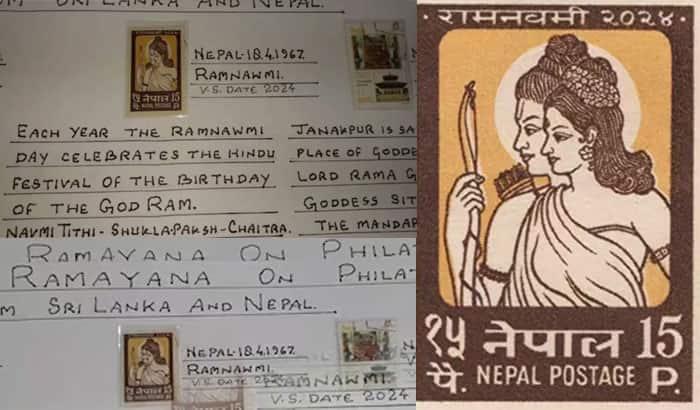 M SRI LANKA AND NEPAL.
NEPAL-18.4.1967
RAMNAWMI.
V.S. DATE 2024
नेपाल 15
EACH YEAR THE RAMNAWMI
DAY CELEBRATES THE HINDU
FESTIVAL OF THE BIRTHDAY
OF THE GOD RAM.
NAVMI TITHI-SHUKLA-PAKSH-CHAITRA.
JANAKPUR IS SA
PLACE OF GODDE
LORD RAMA G
GODDESS SIT
THE MANDAP
RAMAYANA ON PHILAT
RAMAYANA ON PHILA
M SRI LANKA AND NEPAL.
NEPAL-18.4.1967
RAMNAWMI.
V.S. DATE 2024
RAMNAWMI.
V.S. DATE 2024
नेपाल 15
· रामनवमी २०२४ ·
१५ नेपाल 15
पै. NEPAL POSTAGE P.